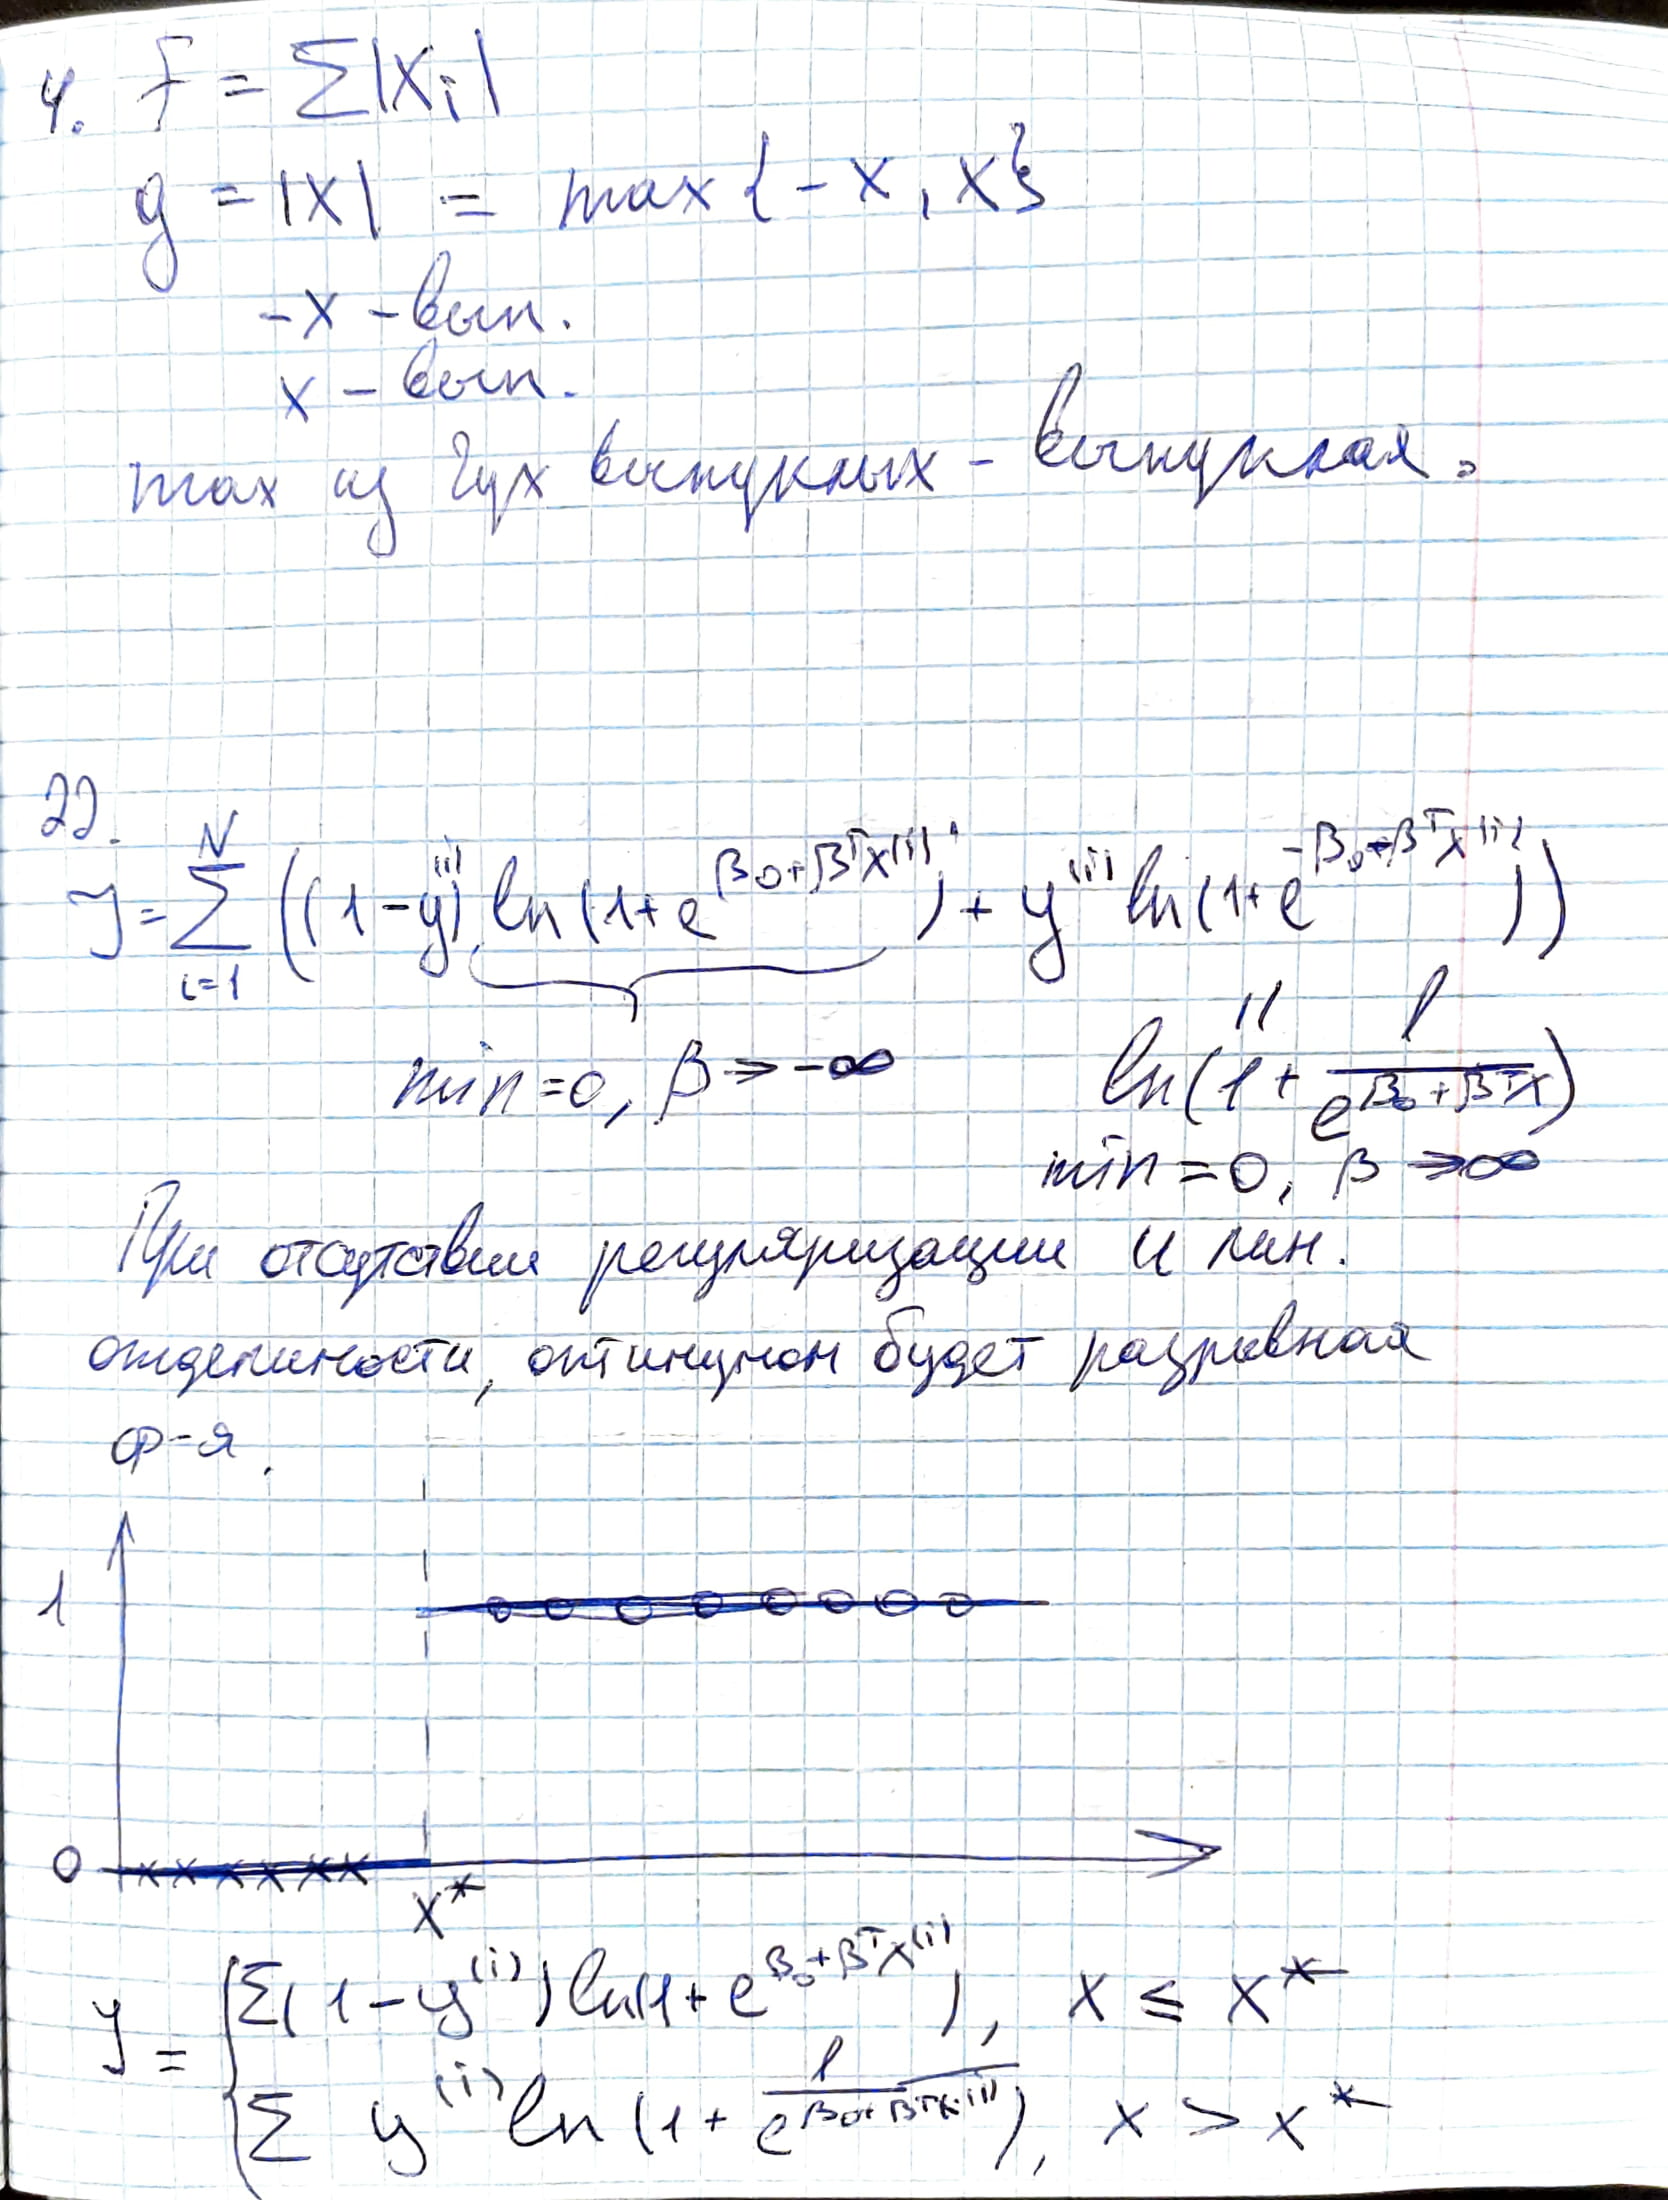 4. F = Σ|Xᵢ|
g = |X| = max{-X, X}
-X - вып.
X - вып.
max из двух выпуклых - выпуклая.
22.
J = Σ_{i=1}^{N} ((1-y⁽ⁱ⁾) ln(1+e^{β₀+βᵀX⁽ⁱ⁾}) + y⁽ⁱ⁾ ln(1+e^{-β₀+βᵀX⁽ⁱ⁾}))
min=0, β → -∞
ln(1+ 1/e^{β₀+βᵀX})
min=0, β → ∞
При отсутствии регуляризации и лин.
отделимости, оптимумом будет разрывная
ф-я.
1
0
X*
J = { Σ(1-y⁽ⁱ⁾) ln(1+e^{β₀+βᵀX⁽ⁱ⁾}), X ≤ X*
Σ y⁽ⁱ⁾ ln(1+ 1/e^{β₀+βᵀX⁽ⁱ⁾}), X > X*